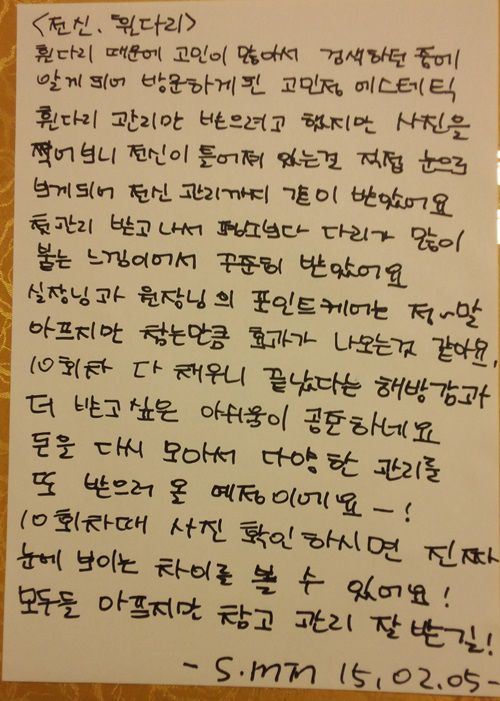 <전신. 휜다리>
휜다리 때문에 고민이 많아서 검색하던 중에
알게되어 방문하게된 고민정 에스테틱
휜다리 관리만 받으려고 했지만 사진을
찍어보니 전신이 틀어져 있는걸 직접 눈으로
보게되어 전신 관리까지 같이 받았어요
첫관리 받고나서 평소보다 다리가 많이
붙는 느낌이어서 꾸준히 받았어요
실장님과 원장님의 포인트케어는 정~말
아프지만 참는만큼 효과가 나오는것 같아요,
10회차 다 채우니 끝났다는 해방감과
더 받고 싶은 아쉬움이 공존하네요
돈을 다시 모아서 다양한 관리를
또 받으러 올 예정이에요 - !
10회차때 사진 확인하시면 진짜
눈에 보이는 차이를 볼 수 있어요!
모두들 아프지만 참고 관리 잘 받길!
- S.MJ 15, 02. 05 -